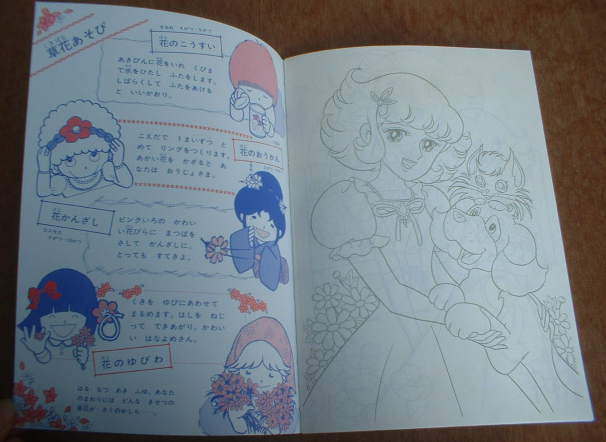 草花あそび
花のこうすい
あきびんに花をいれ くびま
で水をひたし ふたをします。
しばらくして ふたをあける
と いいかおり。
こえだで 1まいずつ と
めて リングをつくります。
あかい花を かざると あ
なたは おうじょさま。
花のおうかん
花かんざし
ピンクいろの かわい
い花びらに まつばを
さして かんざしに。
とっても すてきよ。
くきを ゆびにあわせて
まるめます。はしを ねじ
って できあがり。かわい
い はなよめさん。
花のゆびわ
はる なつ あき ふゆ、あなた
のまわりには どんな きせつの
草花が さくのかしら